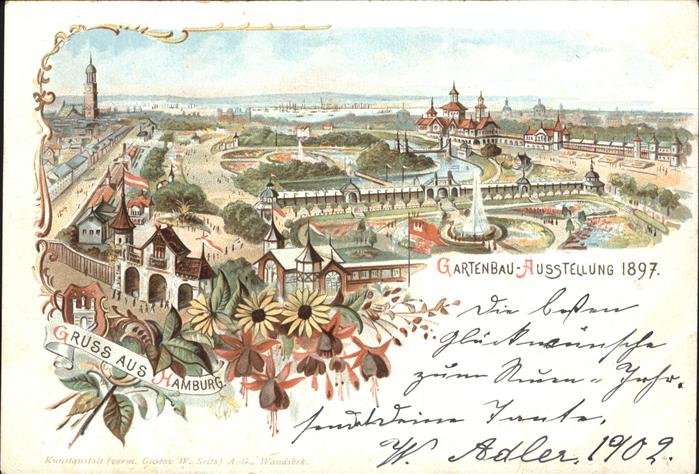 GARTENBAU-AUSSTELLUNG 1897.
Die besten
Glückwünsche
zum Neuen-Jahr.
sendet deine Tante,
W. Adler, 1902.
GRUSS AUS HAMBURG
Kunstanstalt (vorm. Gustav W. Seitz) A.-G., Wandsbek.